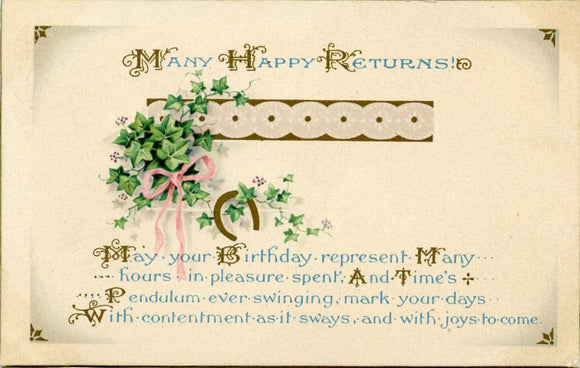 Many Happy Returns!
May your Birthday represent Many
hours in pleasure spent, And Time's
Pendulum ever swinging, mark your days
With contentment as it sways, and with joys to come.